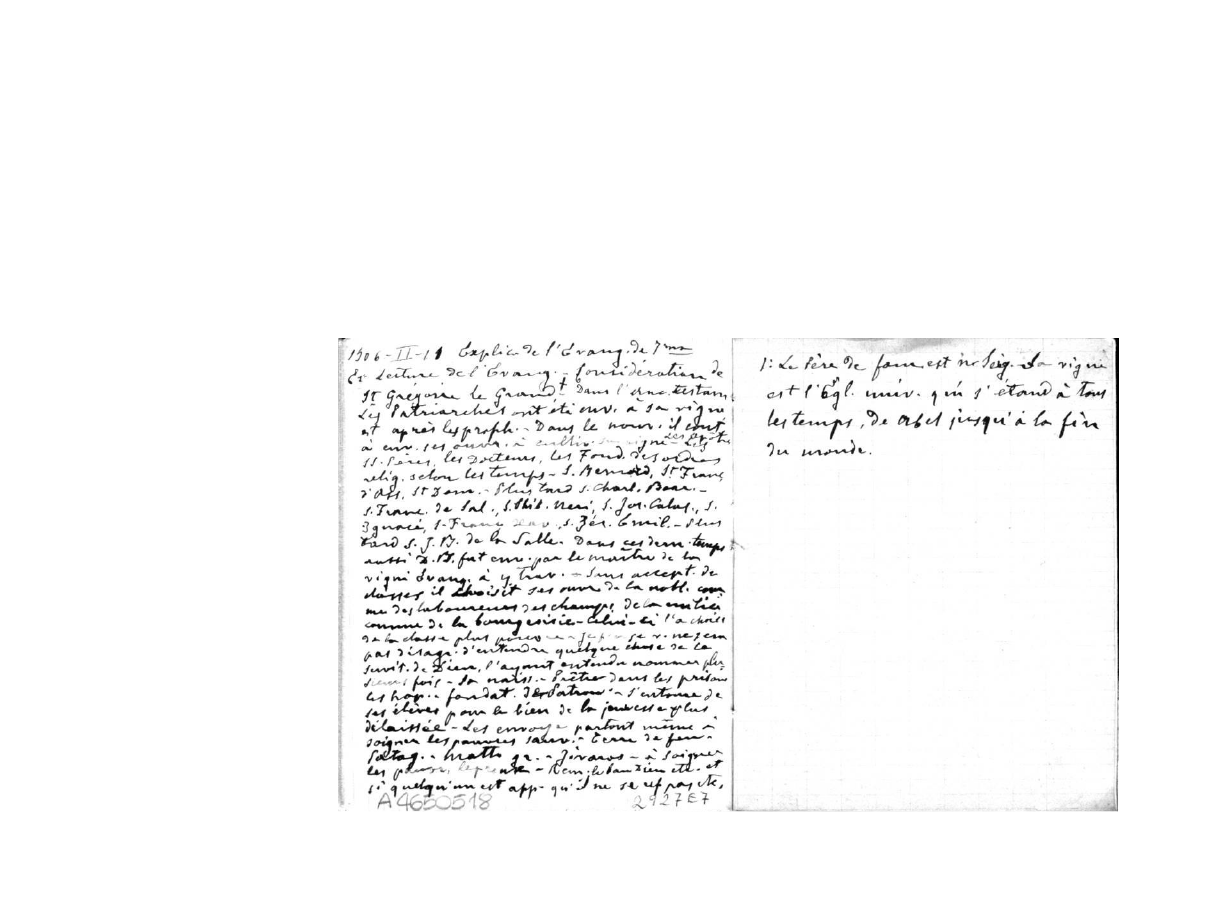 1906-II-11 Explic de l'Evang. de 7ma
Ex Lecture de l'Evang. - Considération de
St Grégoire le Grand - Dans l'anc. testam.
Les Patriarches ont été env. à sa vigne
et après les proph. - Dans le nouv. il cont
à env. ses ouvr. à cultiv. vigne -
SS. Pères, les Docteurs, les Fond. des ordres
relig. selon les temps - S. Bernard, St Franç
d'Ass, St Dom. - Plus tard S. Charl. Borr. -
S. Franc. de Sal., S. Phil. Neri, S. Jos. Calas., S.
Ignace, S. Franç Xav., S. Jér. Emil. - Plus
tard S. J. B. de la Salle. Dans ces dern. temps
aussi D. B. fut env. par le maître de la
vigne évang. à y trav. - Sans accept. de
classes il choisit ses ouvr de la nobl. com
me des laboureurs des champs, de la milice
comme de la bourgeoisie - Celui-ci l'a choisi
de la classe plus pauvre -
pas désagr. d'entendre quelque chose de ce
servit. de Dieu, l'ayant entendu nommer plu-
sieurs fois - Sa naiss. - Prêtre dans les prisons
les hop. - fondat. des Patron. - S'entoure de
ses élèves pour le bien de la jeunesse plus
délaissée - Les envoye partout même à
soigner les pauvres sauv. - Terre de feu -
Patag. - Matto gr. - Jivaros - à soigner
les pauvr. - etc. et
si quelqu'un est app. qu'il ne se ref pas etc.
A4650518 2927E7
1: Le Père de fam est N. Seig. Sa vigne
est l'Egl. univ. qui s'étand à tous
les temps, de Abel jusqu'à la fin
du monde.